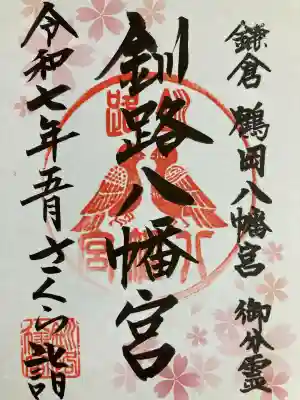 鎌倉 鶴岡八幡宮 御分霊
釧路八幡宮
令和七年五月さくら詣